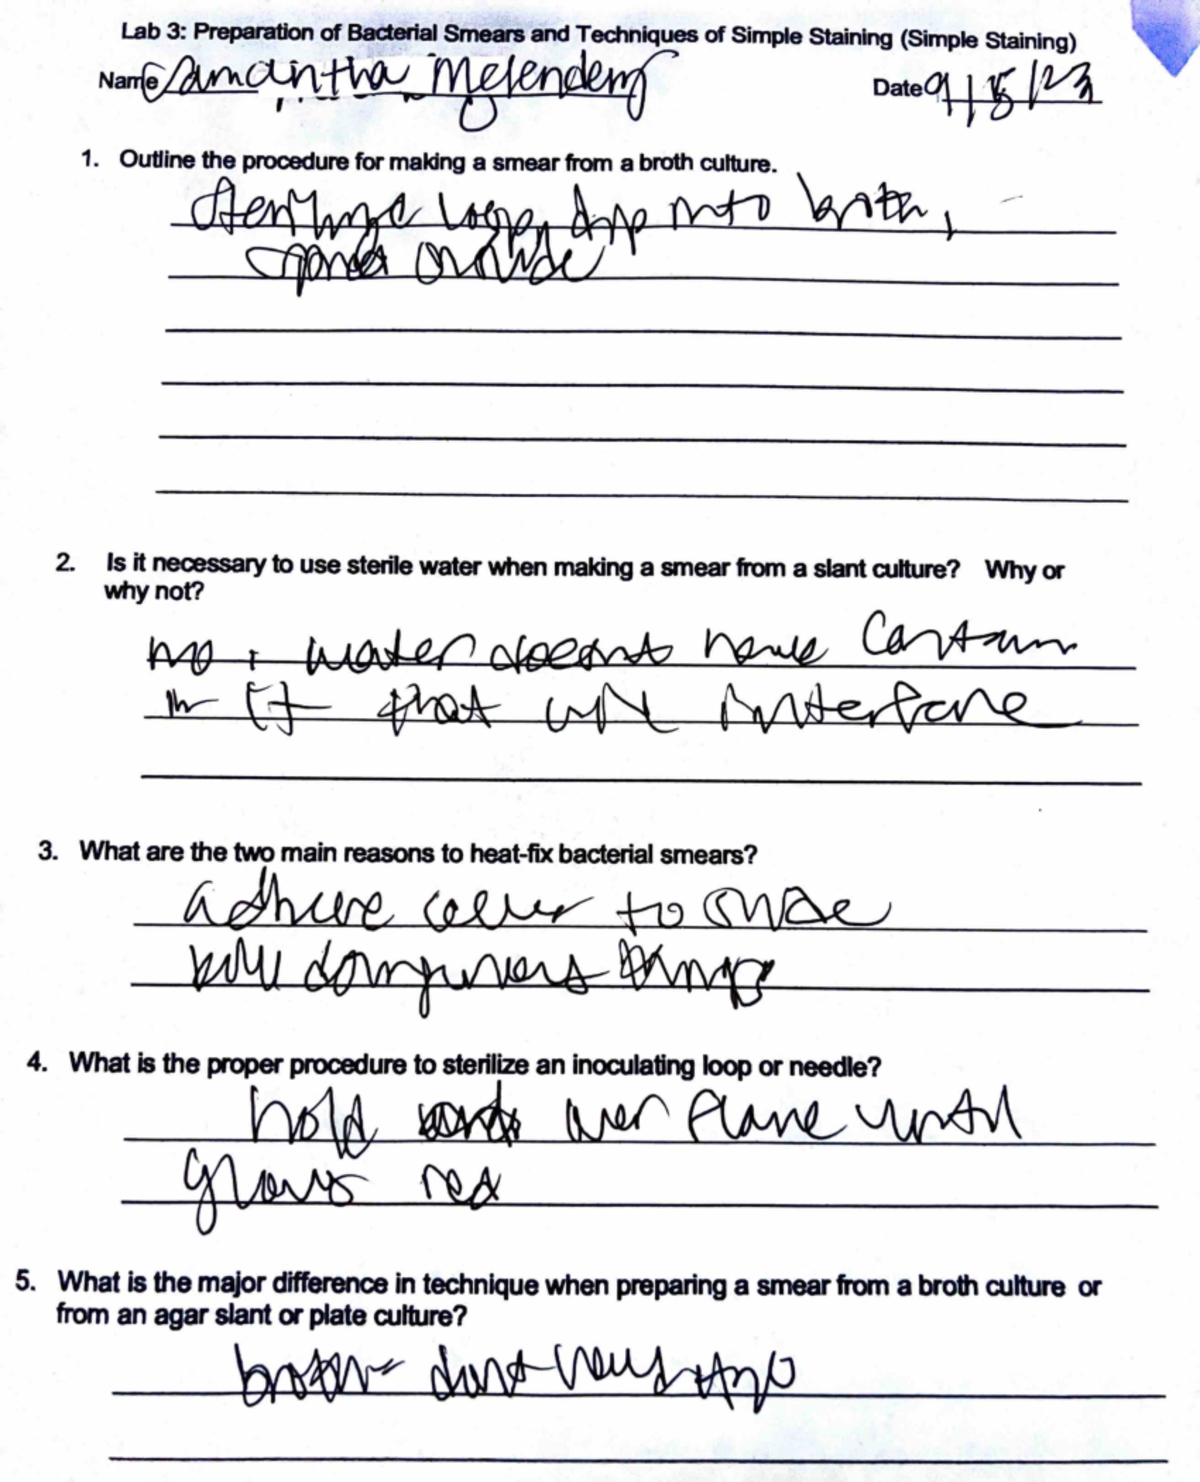 Lab 3: Preparation of Bacterial Smears and Techniques of Simple Staining (Simple Staining)
Name Samantha Melendez Date 9/15/23
1. Outline the procedure for making a smear from a broth culture.
loop, dip into broth,
spread on slide
2. Is it necessary to use sterile water when making a smear from a slant culture? Why or
why not?
no, water doesnt have
in it that will interfare
3. What are the two main reasons to heat-fix bacterial smears?
adhere to slide
kill dangerous things
4. What is the proper procedure to sterilize an inoculating loop or needle?
hold over flame until
glows red
5. What is the major difference in technique when preparing a smear from a broth culture or
from an agar slant or plate culture?
broth - dont